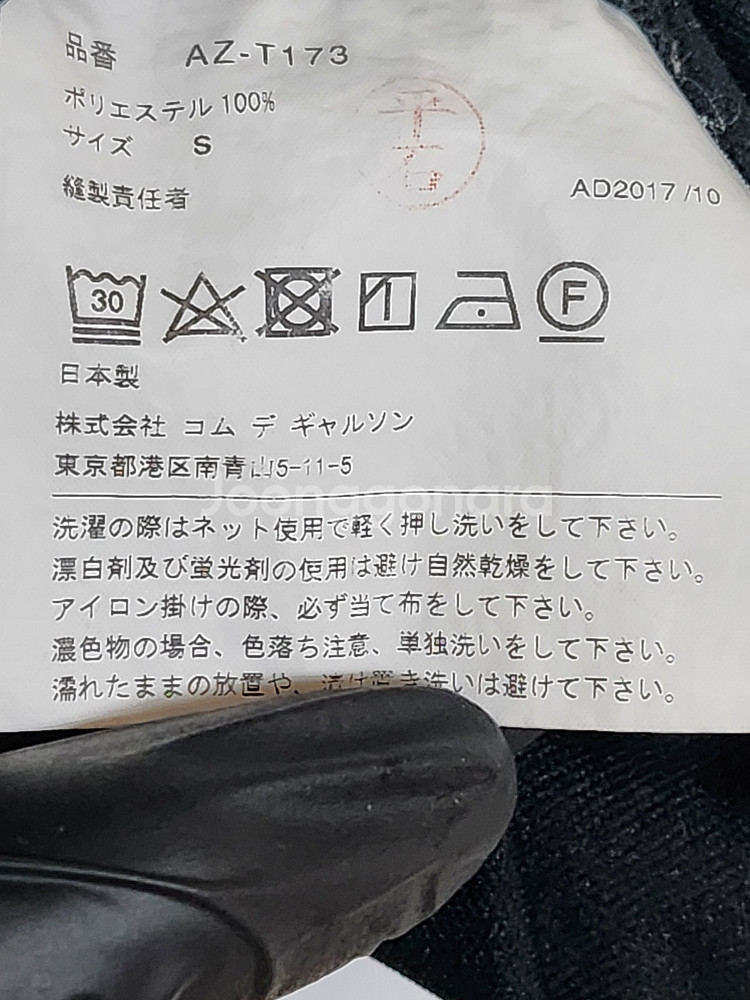 品番 AZ-T173
ポリエステル 100%
サイズ S
平石
縫製責任者
AD2017 /10
30
F
日本製
株式会社 コム デ ギャルソン
東京都港区南青山5-11-5
Joonggonara
洗濯の際はネット使用で軽く押し洗いをして下さい。
漂白剤及び蛍光剤の使用は避け自然乾燥をして下さい。
アイロン掛けの際、必ず当て布をして下さい。
濃色物の場合、色落ち注意、単独洗いをして下さい。
濡れたままの放置や、漬け置き洗いは避けて下さい。